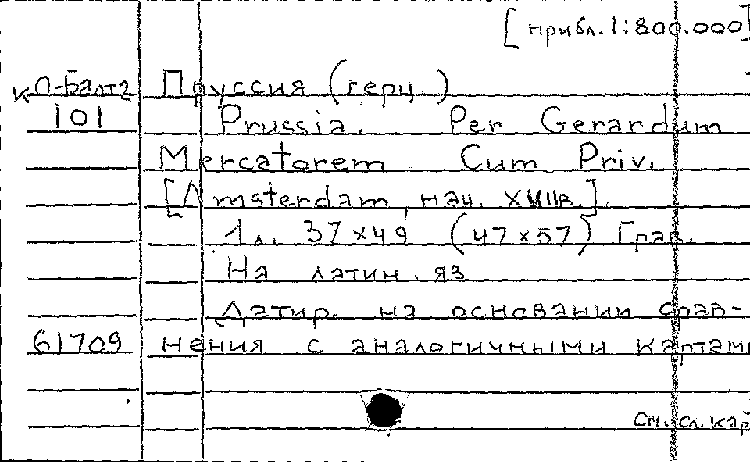 [прибл. 1:800.000]
К П-Балт 2 Пруссия (герц.)
101 Prussia. Per Gerardum
Mercatorem Cum Priv.
[Amsterdam, нач. XVIIв.].
1 л. 37×49 (47×57) Грав.
На латин. яз
Датир. на основании срав-
61709 нения с аналогичными картами
см. сл. кар